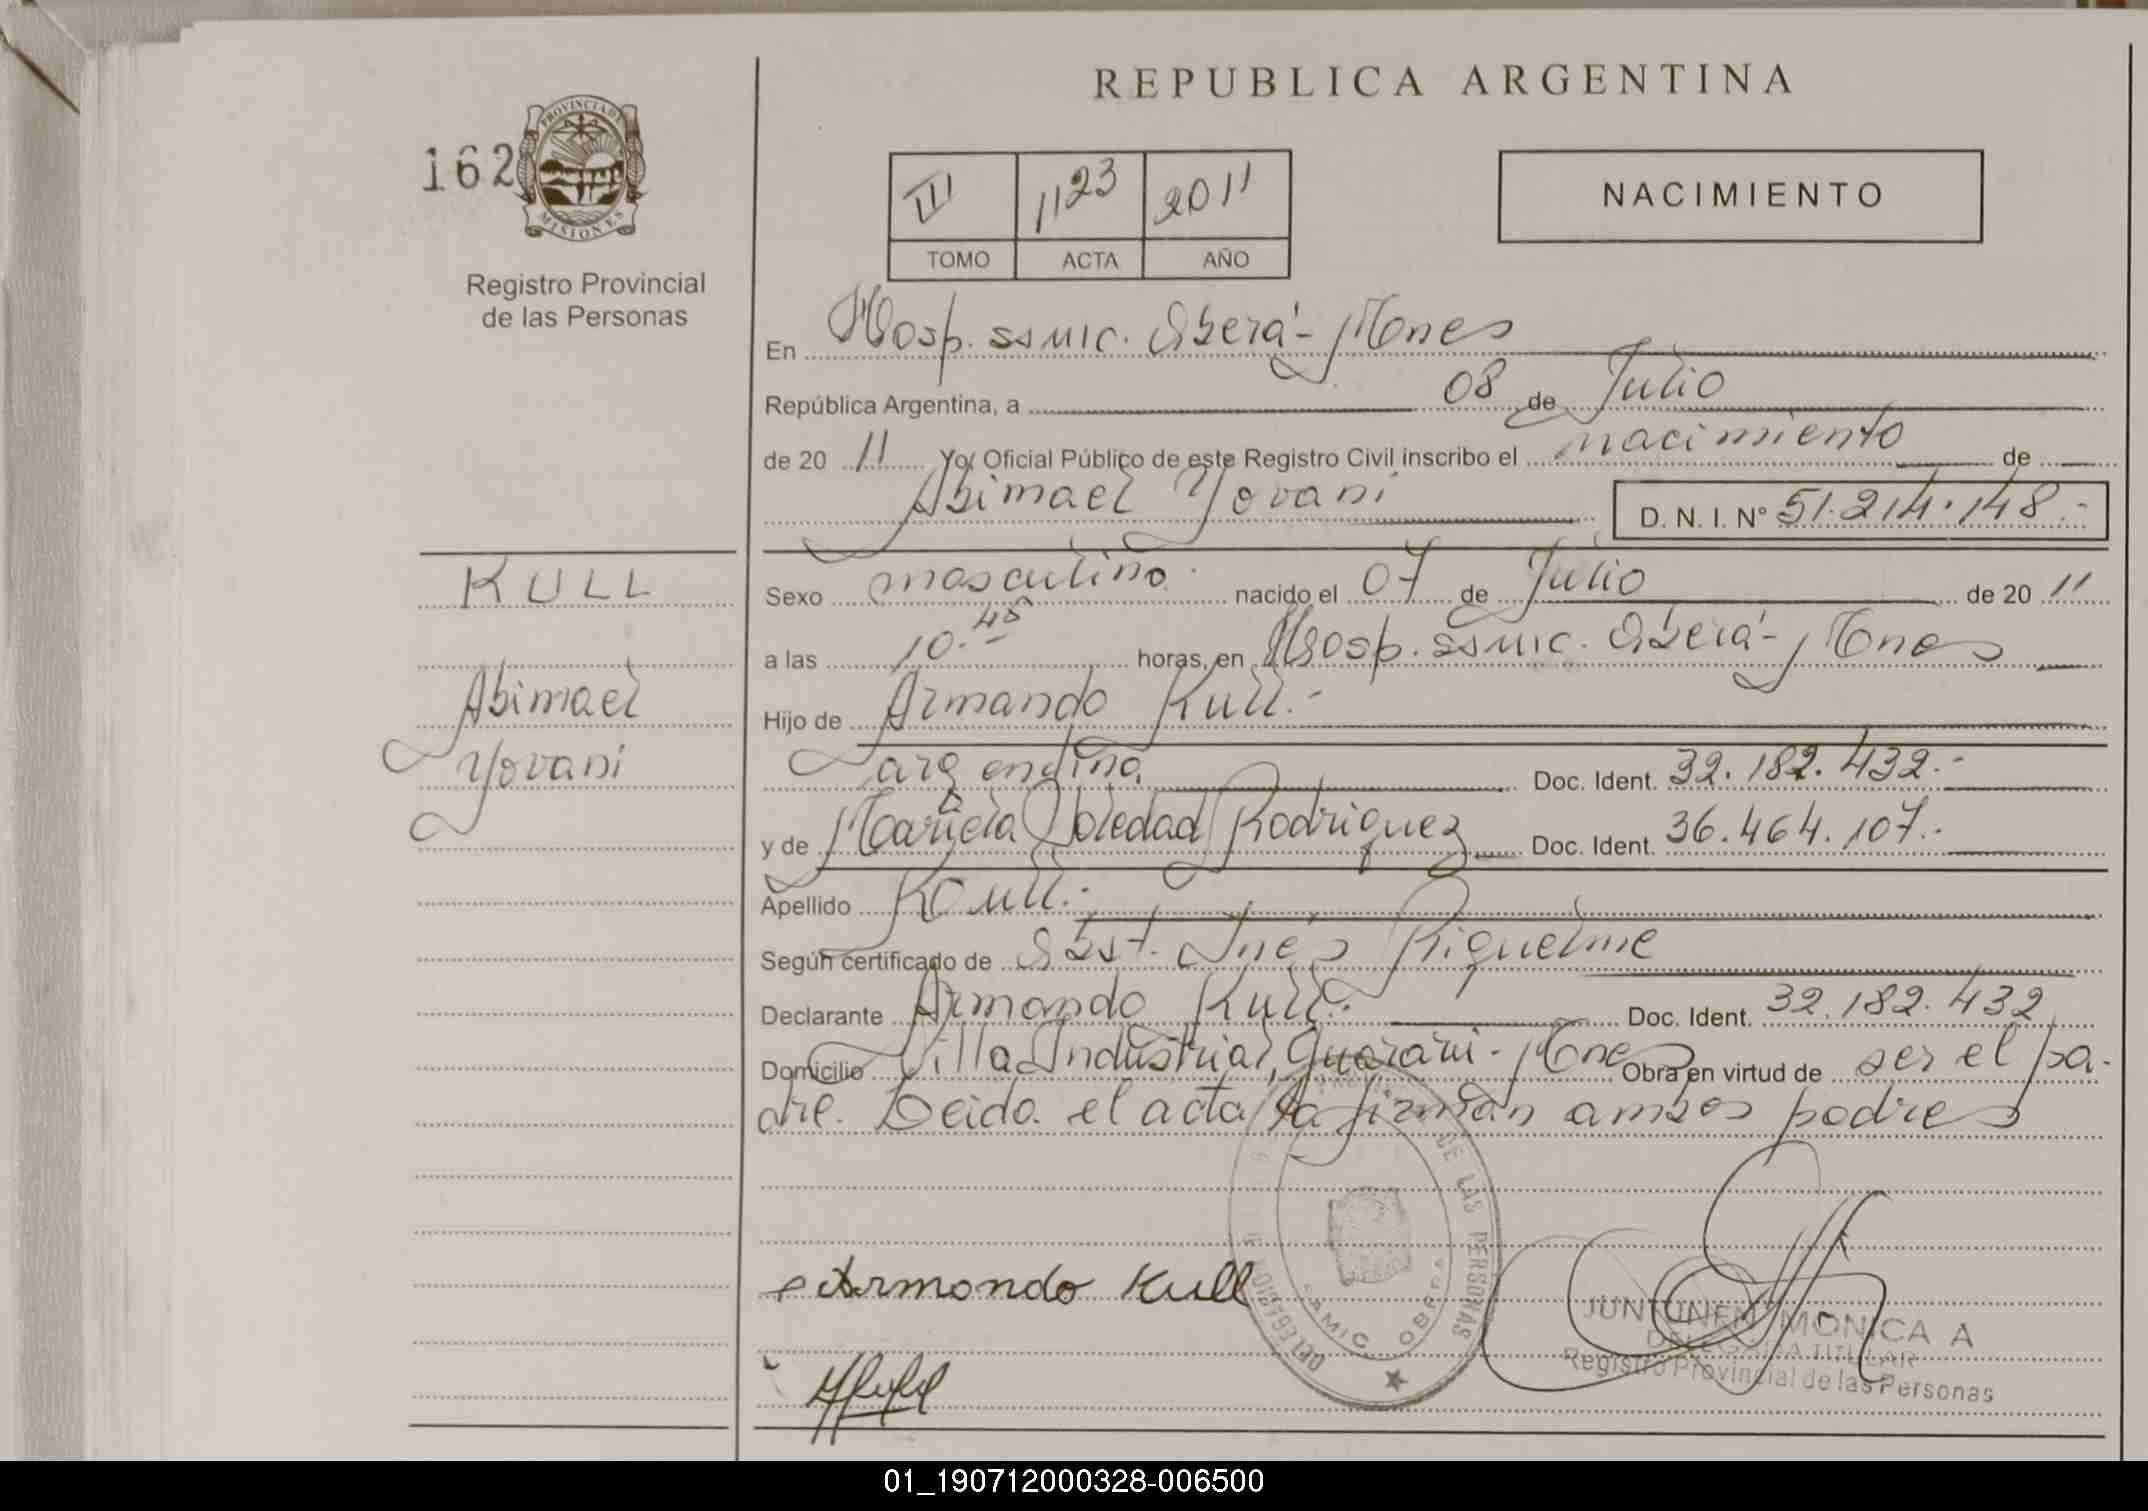 REPUBLICA ARGENTINA
162
PROVINCIA DE
MISIONES
Registro Provincial
de las Personas
III 1123 2011
TOMO ACTA AÑO
NACIMIENTO
En Hosp. SAMIC. Oberá - Mnes
República Argentina, a 08 de Julio
de 20 11 Yo, Oficial Público de este Registro Civil inscribo el nacimiento de
Abimael Yovani D. N. I. Nº 51.214.148.-
KULL
Abimael
Yovani
Sexo masculino. nacido el 07 de Julio de 20 11
a las 10.45 horas, en Hosp. SAMIC. Oberá - Mnes
Hijo de Armando Kull.-
argentina Doc. Ident. 32.182.432.-
y de Mariela Soledad Rodriguez Doc. Ident. 36.464.107.-
Apellido Kull.-
Según certificado de Obst. Inés Riquelme
Declarante Armando Kull.- Doc. Ident. 32.182.432
Domicilio Villa Industrial, Guaraní - Mnes Obra en virtud de ser el pa-
dre. Leida el acta la firman ambos padres
Armando Kull
DE LAS PERSONAS
DELEGACION
SAMIC OBERA
JUNTUNEN MONICA A
DELEGADA TITULAR
Registro Provincial de las Personas
01_190712000328-006500